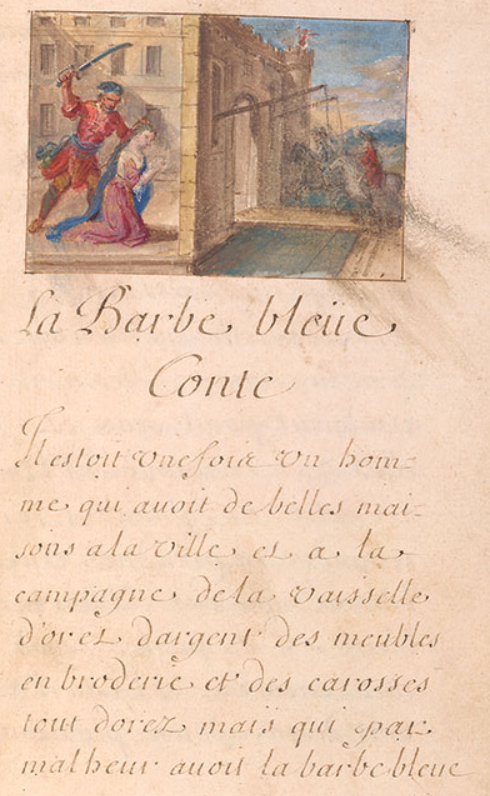 la Barbe bleüe
Conte
Il estoit vne fois vn hom=
me qui auoit de belles mai=
sons a la ville et a la
campagne de la vaisselle
d'or et dargent des meubles
en broderie et des carosses
tout dorez mais qui par
malheur auoit la barbe bleue